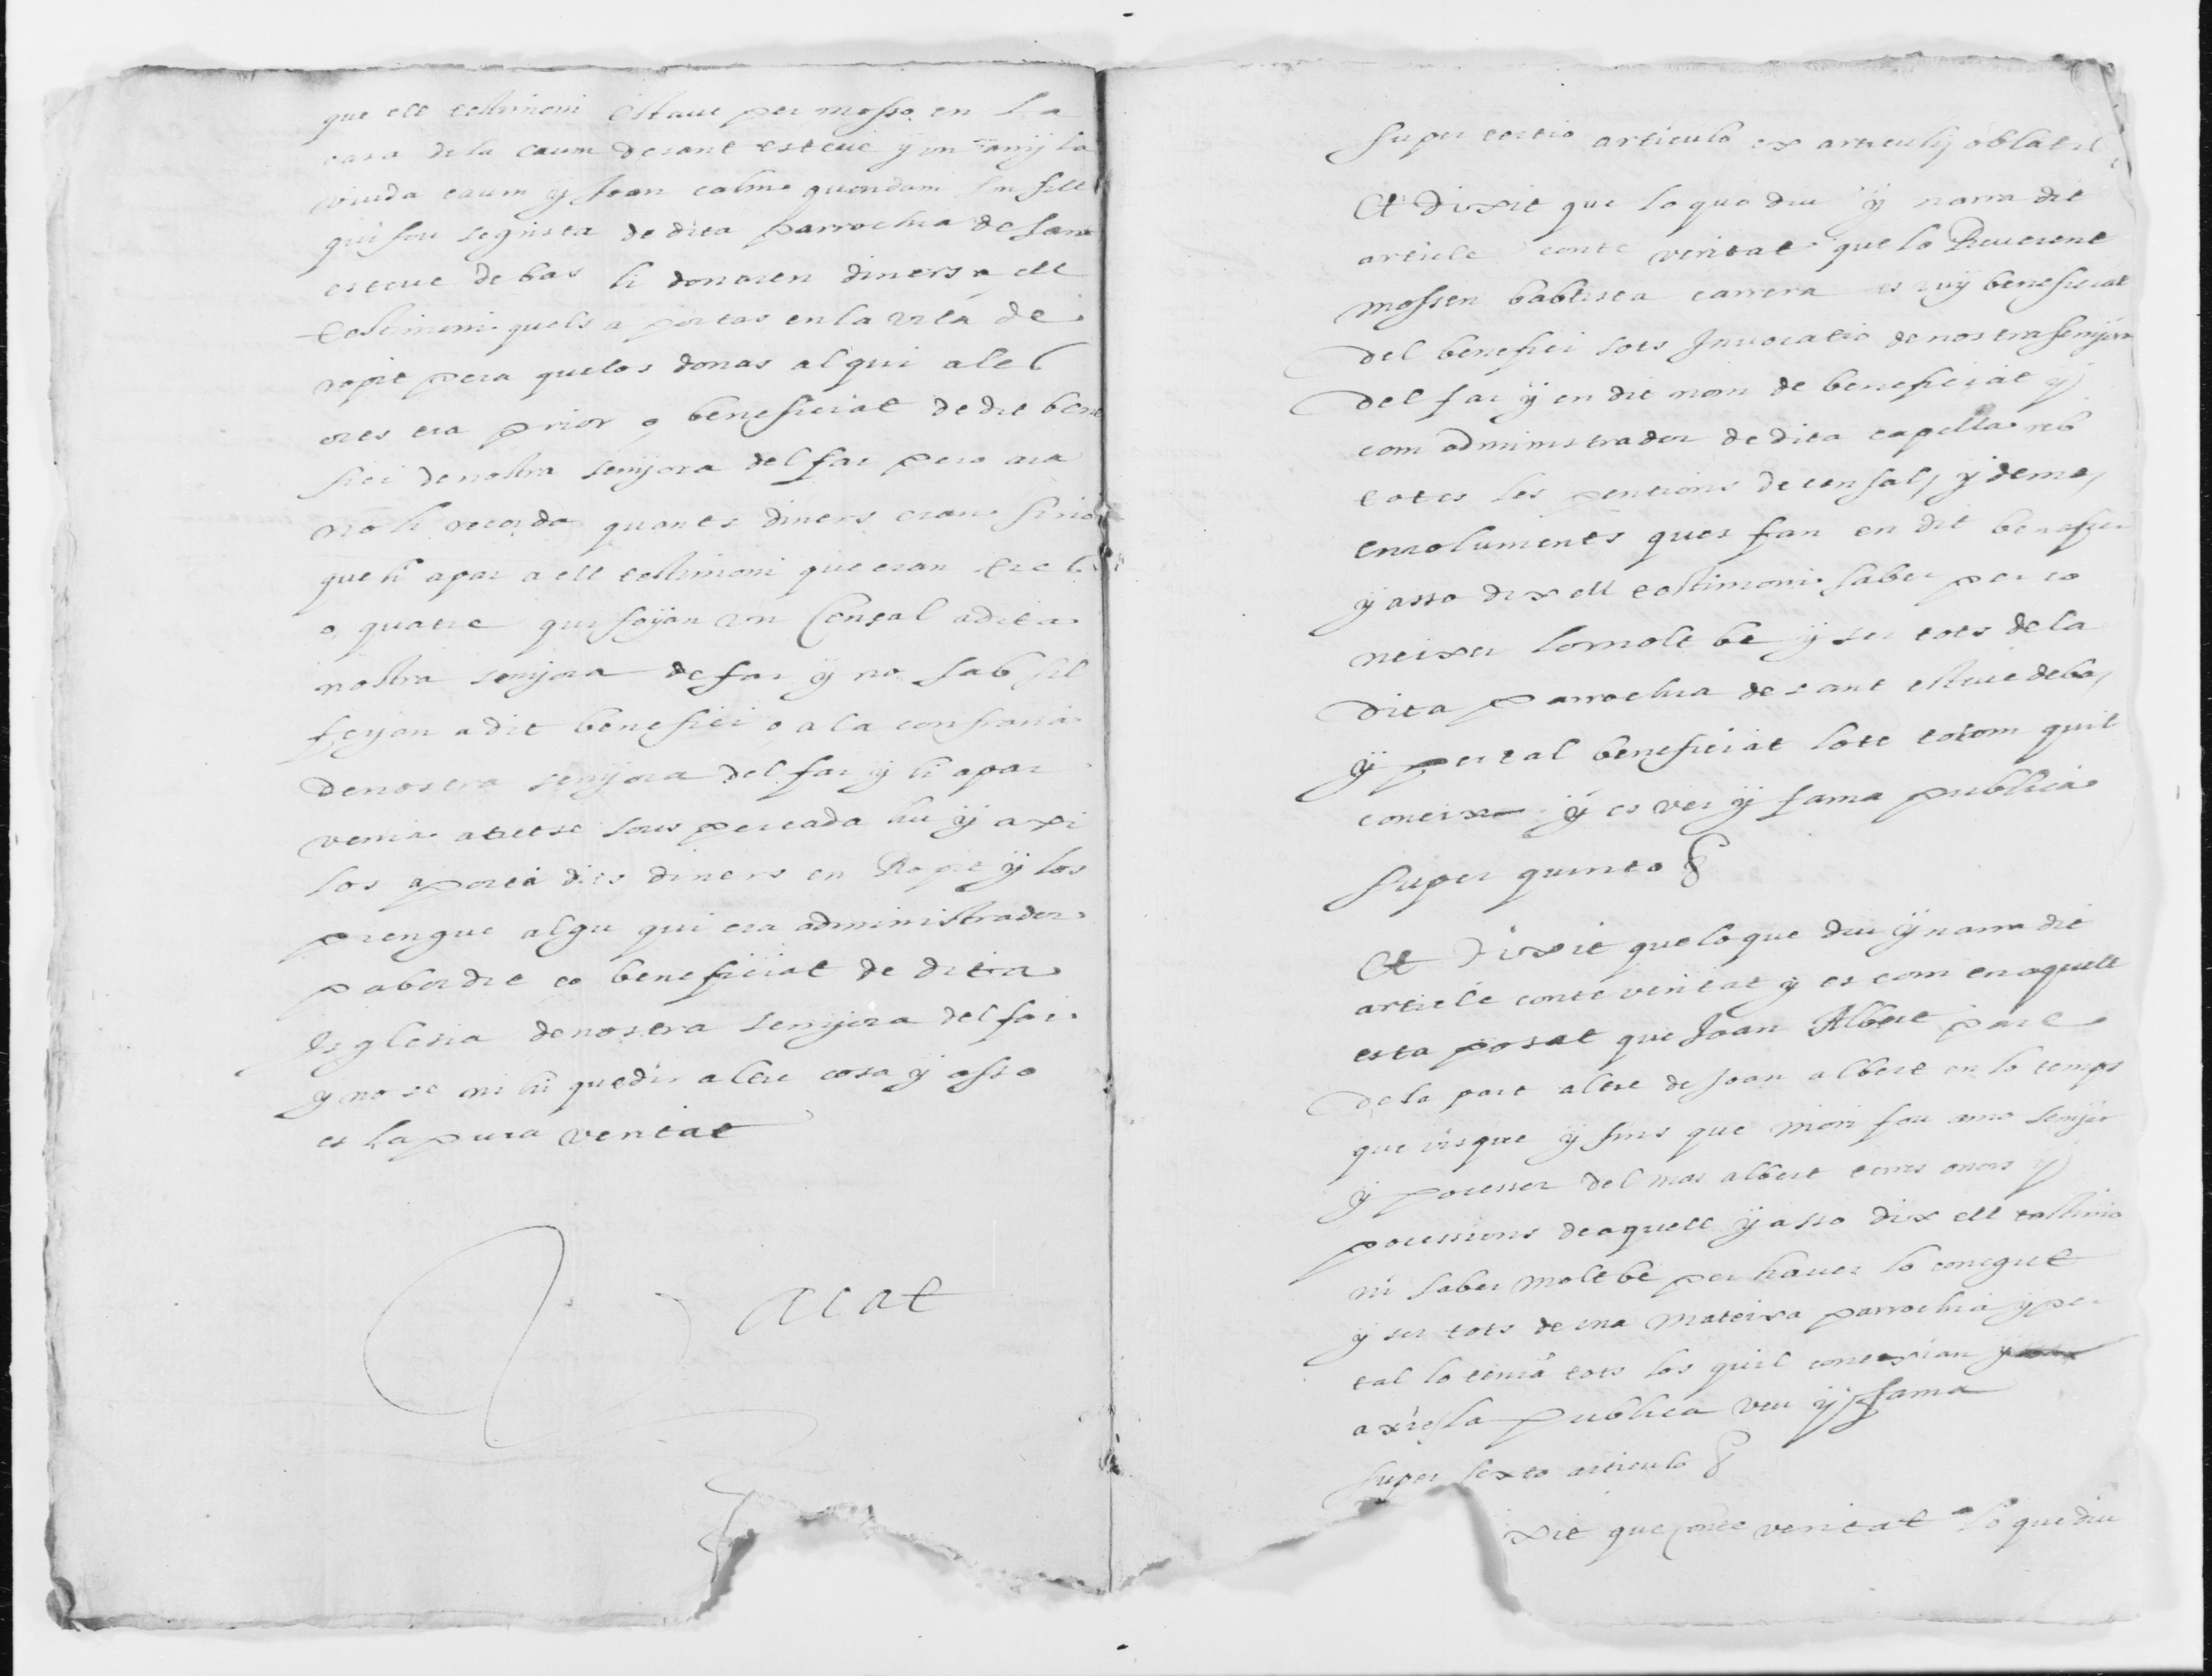 que ell testimoni estaue per mosso en la
casa dela caum desant esteue y un any la
viuda caum y Joan calm quondam son fill
qui fou de dita parrochia de sant
esteue de bas li donaren diners a ell
testimoni quels a portas en la vila de
ropit pera quelos donas al qui ales
ores era prior o beneficiat de dit bene
fici de nostra senyora del far pero ara
no li recorda quants diners eran sino
que li apar a ell testimoni que eran tres
o quatre qui fayan un Censal adita
nostra senyora de far y no sab sil
feyan a dit benefici o a la confraria
denostra senyora del far y li apar
venia asetse sous percada hu y axi
los aporta dits diners en Ropit y los
prengue algu qui era administrador
pabordre o beneficiat de dita
Isglesia denostra senyora del far
y no se ni hi que dir altre cosa y asso
es la pura veritat
Vacat
super tertio articulo ex articulis oblatis
Et dixit que lo que diu y narra dit
article conte veritat que lo Reuerent
mossen babtista carrera es uy beneficiat
del benefici sots Inuocatio de nostra senyora
del far y en dit nom de beneficiat y
com administrador de dita capella reb
totes les pentions de censals y demes
emoluments ques fan en dit benefici
y asso dix ell testimoni saber per co
neixer lo molt be y ser tots de la
dita parrochia de sant esteue debas
y per tal beneficiat lo te totom quil
coneix y es veu y fama publica
super quinto
Et dixit que lo que diu y narra dit
article conte veritat y es com en aquell
esta posat que Joan Albert pare
de la part altre de Joan albert en lo temps
que visque y fins que mori fou amo senyor
y pocessor del mas albert terres onors y
pocessions de aquell y asso dix ell testimo
ni saber molt be per hauer lo conegut
y ser tots de una mateixa parrochia y per
tal lo tenia tots los quil conexian
axi es la publica veu y fama
super sexto articulo
xit que conte veritat lo que diu